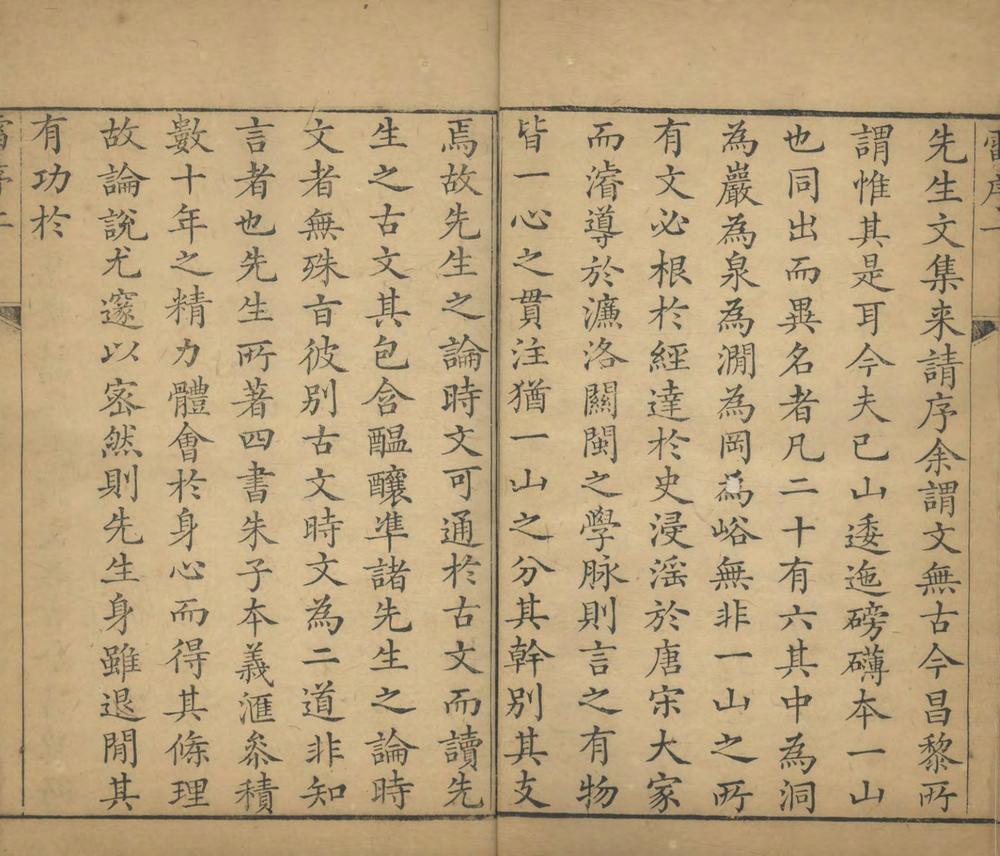 先生文集来請序余謂文無古今昌黎所
謂惟其是耳今夫已山逶迤磅礴本一山
也同出而異名者凡二十有六其中為洞
為巖為泉為澗為岡為峪無非一山之所
有文必根於經達於史浸淫於唐宋大家
而濬導於濂洛關閩之學脉則言之有物
皆一心之貫注猶一山之分其幹别其支
焉故先生之論時文可通於古文而讀先
生之古文其包含醖釀凖諸先生之論時
文者無殊㫖彼别古文時文為二道非知
言者也先生所著四書朱子本義滙叅積
數十年之精力體會於身心而得其條理
故論說尤邃以宻然則先生身雖退閒其
有功於